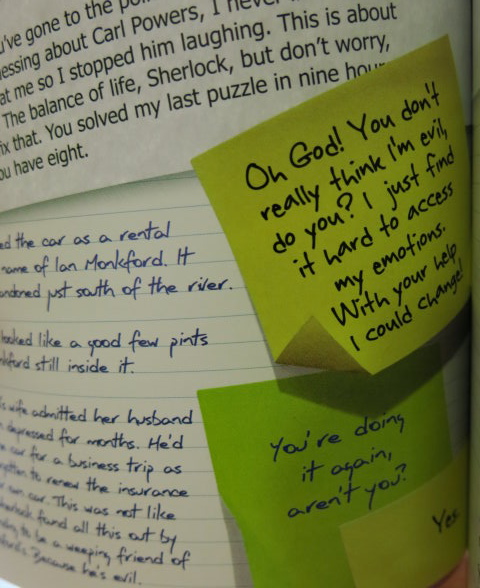 u've gone to the
essing about Carl Powers, I never
at me so I stopped him laughing. This is about
The balance of life, Sherlock, but don't worry,
ix that. You solved my last puzzle in nine hou
ou have eight.
Oh God! You don't
really think I'm evil,
do you? I just find
it hard to access
my emotions.
With your help
I could change!
ed the car as a rental
name of Ian Monkford. It
andoned just south of the river.
looked like a good few pints
nkford still inside it.
s wife admitted her husband
depressed for months. He'd
car for a business trip as
gotten to renew the insurance
own car. This was not like
herlock found all this out by
ding to be a weeping friend of
ford's. Because he's evil.
You're doing
it again,
aren't you?
Yes